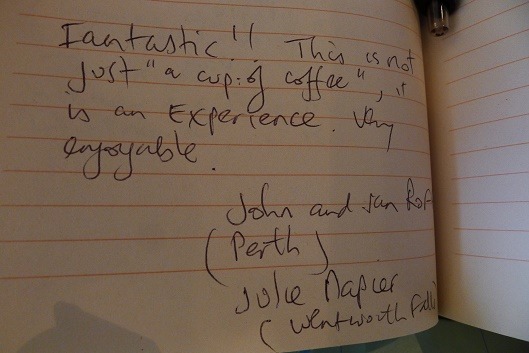 Fantastic!! This is not
just "a cup of coffee", it
is an Experience. Very
enjoyable.
John and Jan
(Perth)
Julie Napier
(Wentworth Falls)